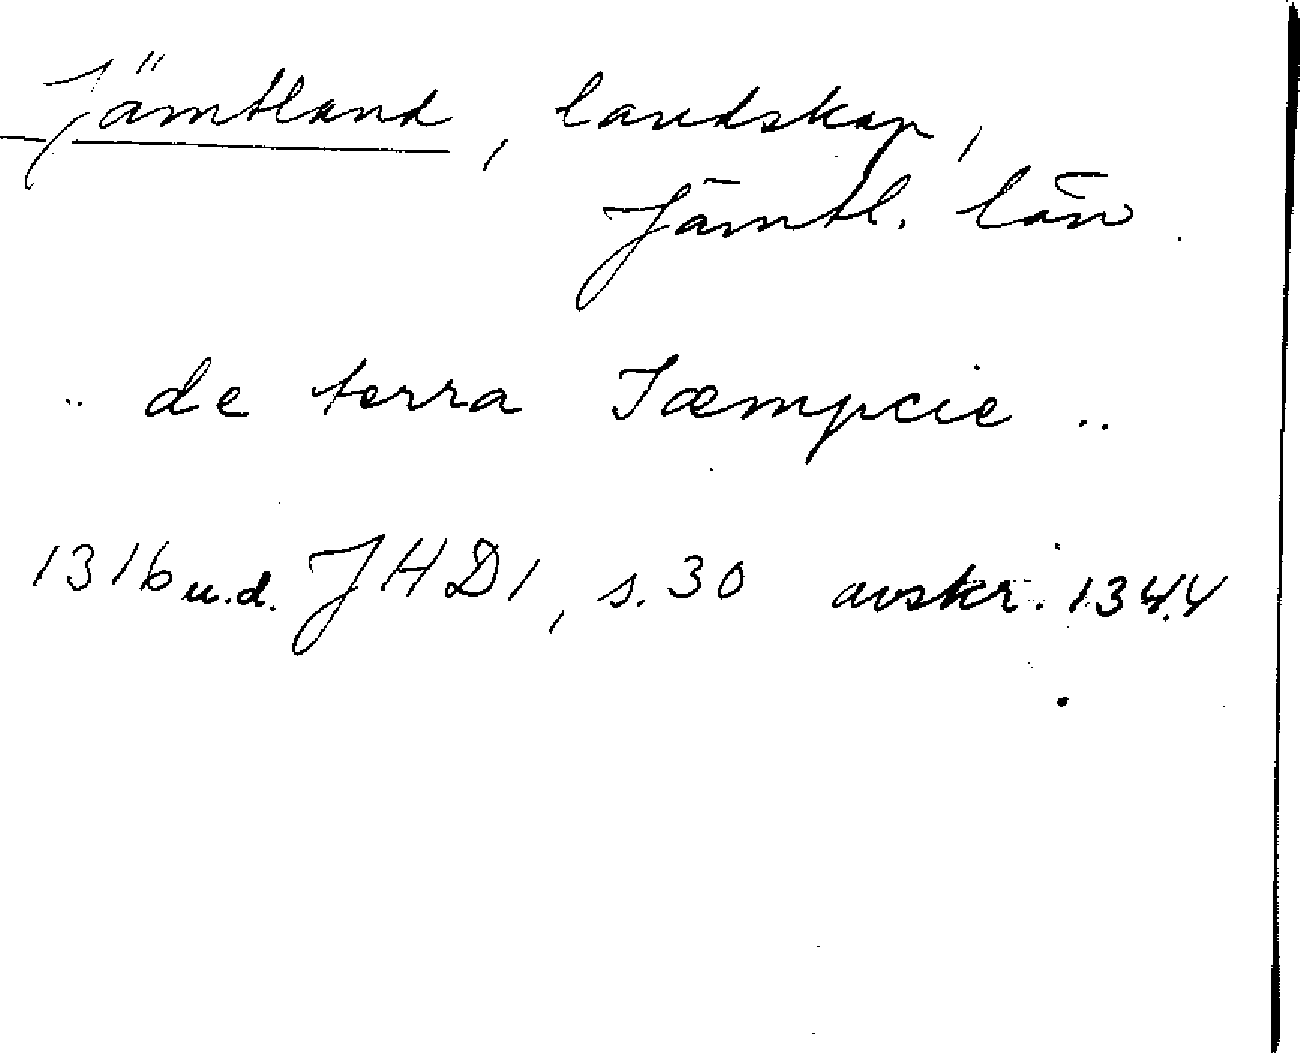 Jämtland, landskap,
Jämtl. län
.. de terra Jæmpcie ..
1316 u.d. JHD1, s. 30 avskr. 1344